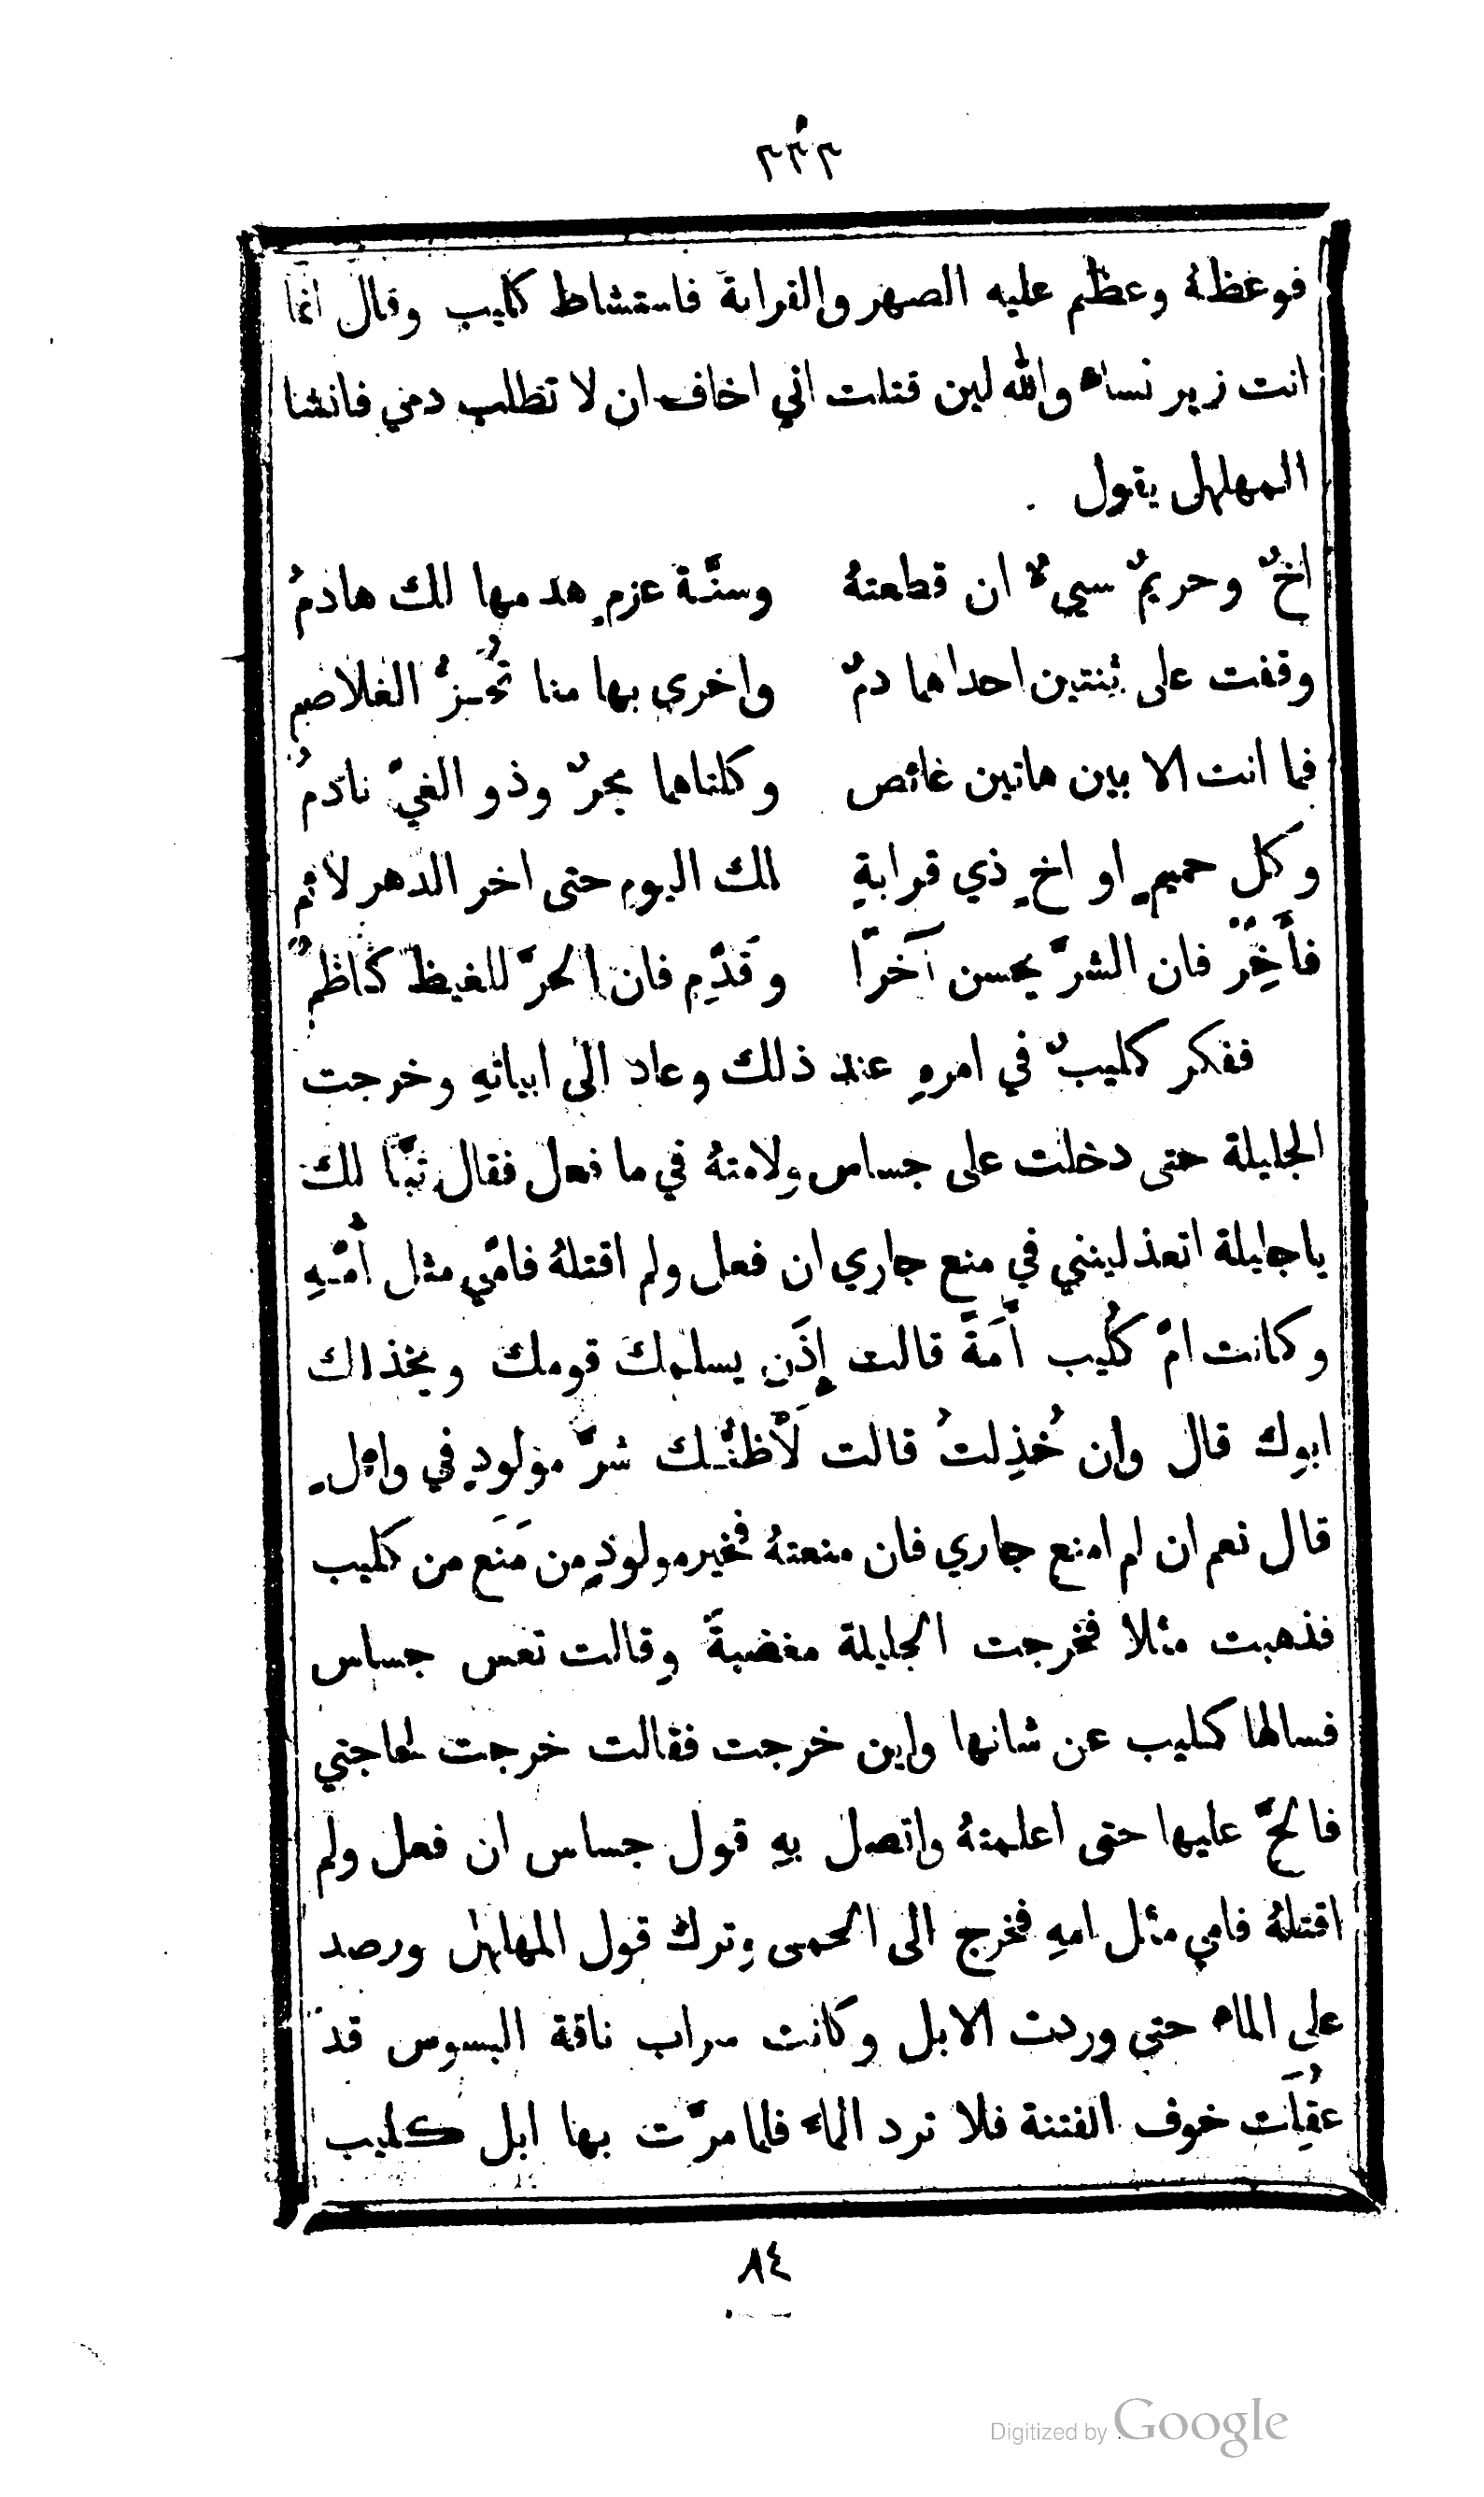 ٣٣٣
فوعظهُ وعظّم عليه الصهر والقرابة فاستشاط كليب وقال انما
انت زير نساء والله لين قتلت اني اخاف ان لا تطلب دمي فانشا
المهلهل يقول
اخٌ وحريمٌ سيءٌ ان قطعتهُ وسنَّة عزمٍ هدمها لك هادمُ
وقفت على ثنتين احداهما دمٌ واخرى بها منا تُحَزُّ الغلاصم
فما انت الا بين هاتين غائص وكلتاهما بحرٌ وذو الغيّ نادمُ
وكل حميمٍ او اخٍ ذي قرابةٍ لك اليوم حتى اخر الدهر لائم
فأَخِّر فان الشرّ يحسن آخرًا وقَدِّم فان الحرّ للغيظ كاظمٌ
ففكر كليبٌ في امرهِ عند ذلك وعاد الى ابياتهِ وخرجت
الجليلة حتى دخلت على جساس ولامتهُ في ما فعل فقال تبًّا لك
يا جليلة اتعذلينني في منع جاري ان فعل ولم اقتلهُ فامّي مثل أُمّهِ
وكانت امّ كُليب أَمَةً قالت إِذَن يسلمكَ قومك ويخذلك
ابوك قال وان خُذِلتُ قالت لأَظنُّك شرّ مولودٍ في وائل
قال نعم ان لم امنع جاري فان منعتهُ فخير مولودٍ من مَنَع من كليب
فذهبت مثلا فخرجت الجليلة مغضبةً وقالت تعس جساس
فسالها كليب عن شانها واين خرجت فقالت خرجت لحاجتي
فالحّ عليها حتى اعلمتهُ واتصل بهِ قول جساس ان فعل ولم
اقتلهُ فامي مثل امهِ فخرج الى الحمى وترك قول المهلهل ورصد
على الماء حتى وردت الابل وكانت سراب ناقة البسوس قد
عُقِلَت خوف الفتنة فلا ترد الماء فلما مرّت بها ابل كليب
٨٤
Digitized by Google